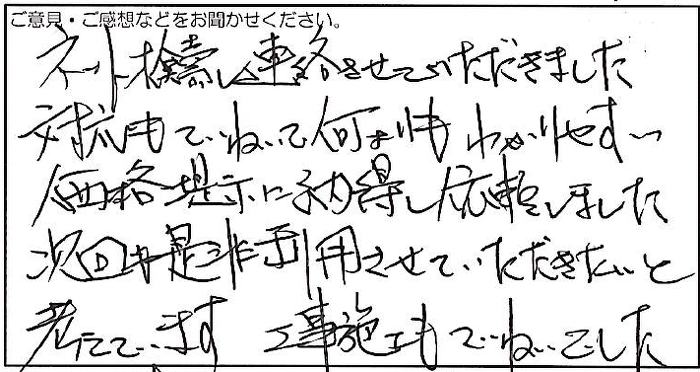 ご意見・ご感想などをお聞かせください。
ネット検索し連絡させていただきました
対応もていねいで何よりもわかりやすい
価格提示に納得し依頼しました
次回も是非利用させていただきたいと
考えています 工事施工もていねいでした